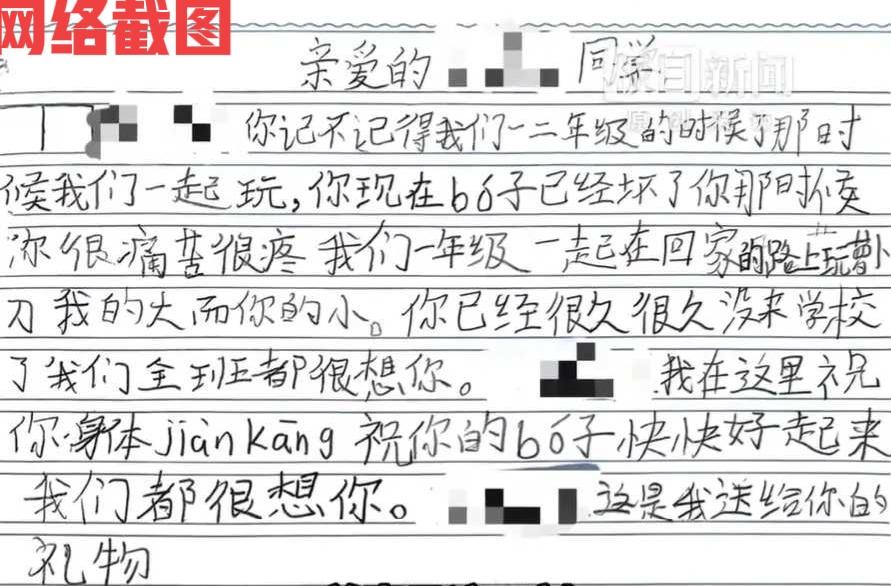 网络截图
亲爱的 同学
你记不记得我们一二年级的时候了那时
候我们一起玩,你现在bó子已经坏了你那时候
你很痛苦很疼我们一年级一起在回家的路上玩萝卜
刀我的大而你的小。你已经很久很久没来学校
了我们全班都很想你。 我在这里祝
你身体jiànkāng祝你的bó子快快好起来
我们都很想你。 这是我送给你的
礼物